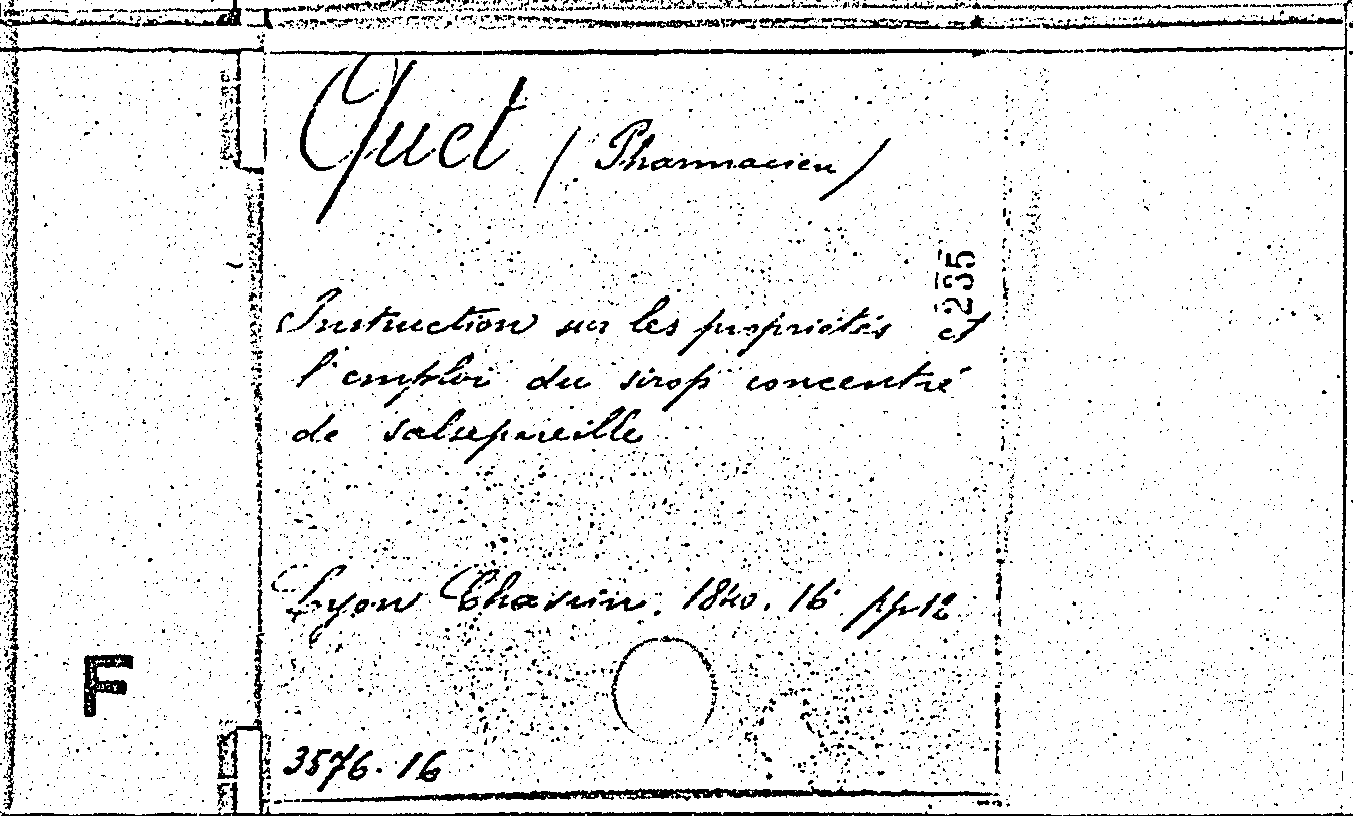 Quet (Pharmacien)
235
Instruction sur les propriétés et
l'emploi du sirop concentré
de salsepareille
Lyon Chavin. 1840. 16 pp 12
F
3576. 16